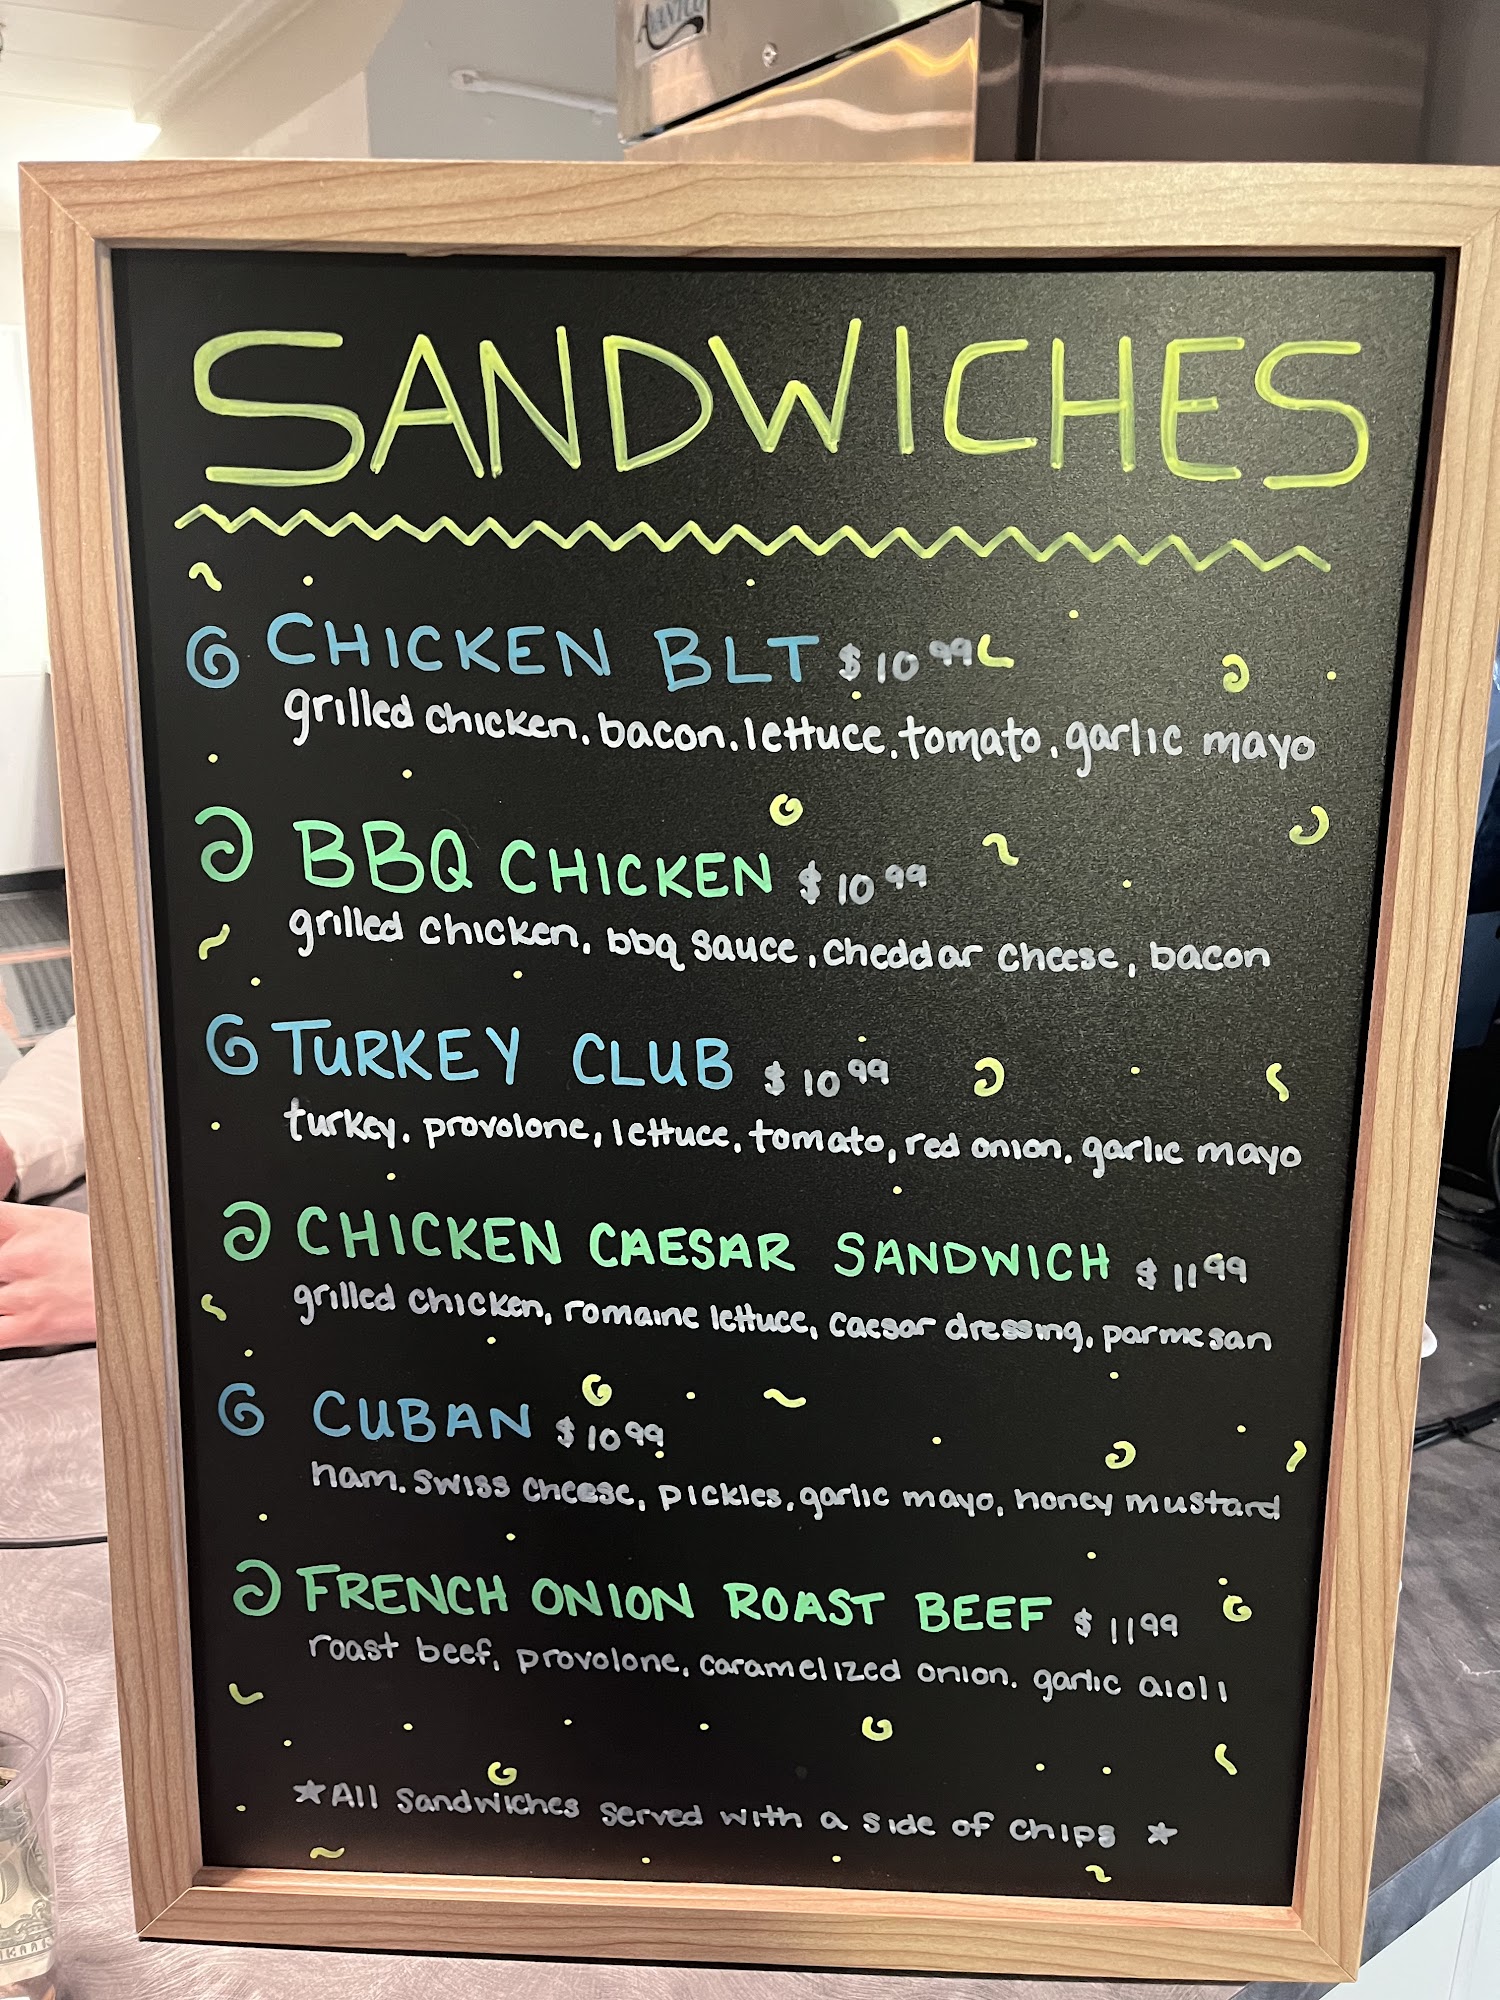 AVANTCO
SANDWICHES
CHICKEN BLT $10.99
grilled chicken, bacon, lettuce, tomato, garlic mayo
BBQ CHICKEN $10.99
grilled chicken, bbq sauce, cheddar cheese, bacon
TURKEY CLUB $10.99
turkey, provolone, lettuce, tomato, red onion, garlic mayo
CHICKEN CAESAR SANDWICH $11.99
grilled chicken, romaine lettuce, caesar dressing, parmesan
CUBAN $10.99
ham, swiss cheese, pickles, garlic mayo, honey mustard
FRENCH ONION ROAST BEEF $11.99
roast beef, provolone, caramelized onion, garlic aioli
★All sandwiches served with a side of chips ★